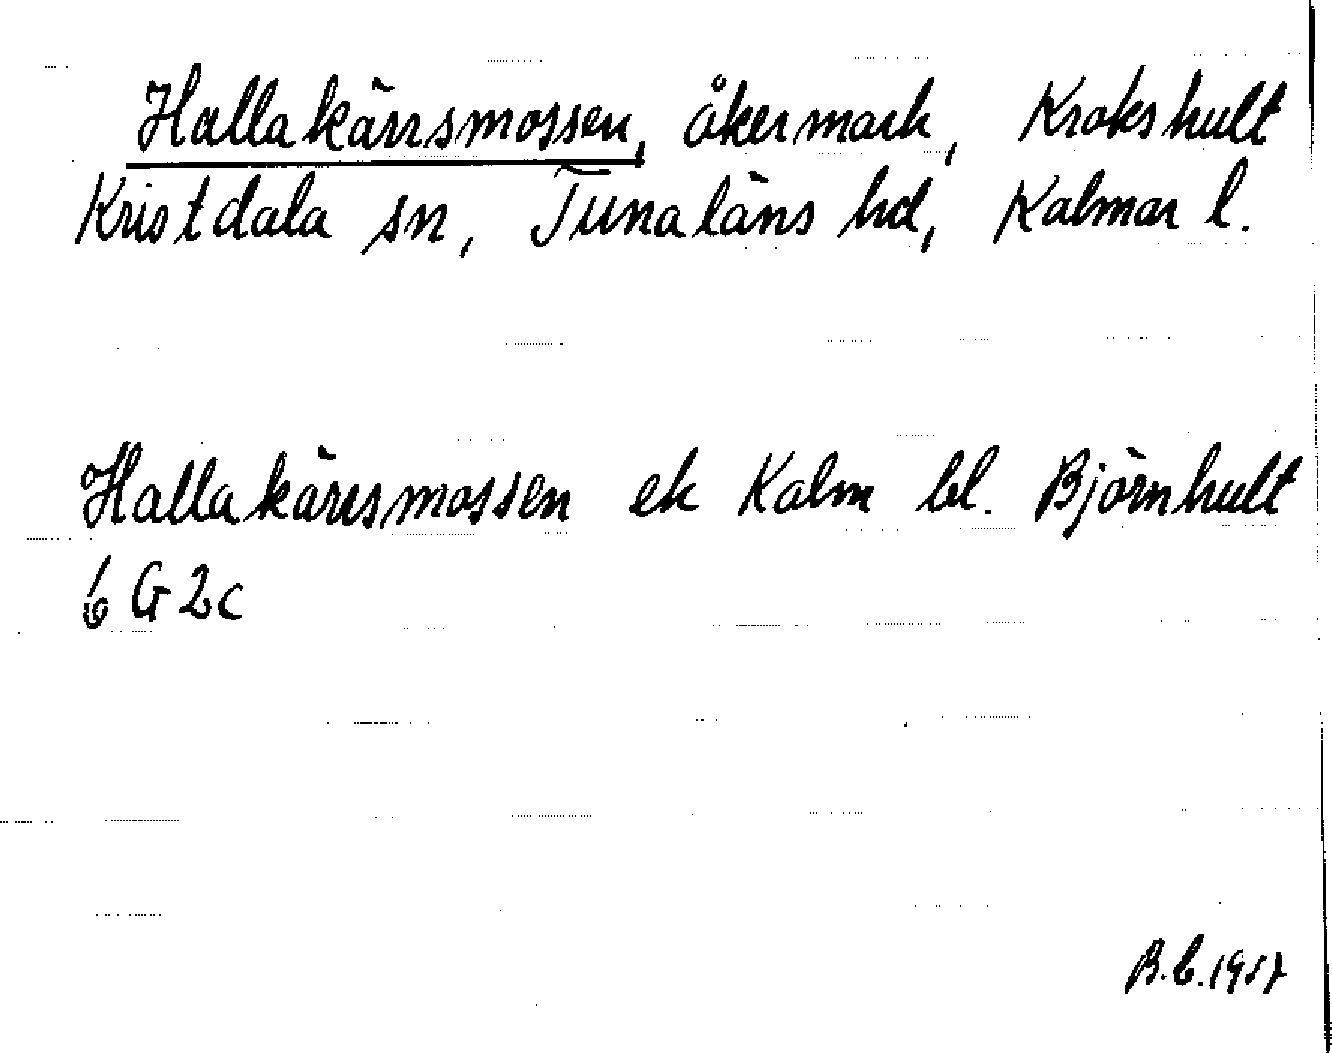 Hallakärrsmossen, åkermark, Krokshult
Kristdala sn, Tunaläns hd, Kalmar l.
Hallakärrsmossen ek Kalm bl. Björnhult
6 G 2c
B.C. 1957